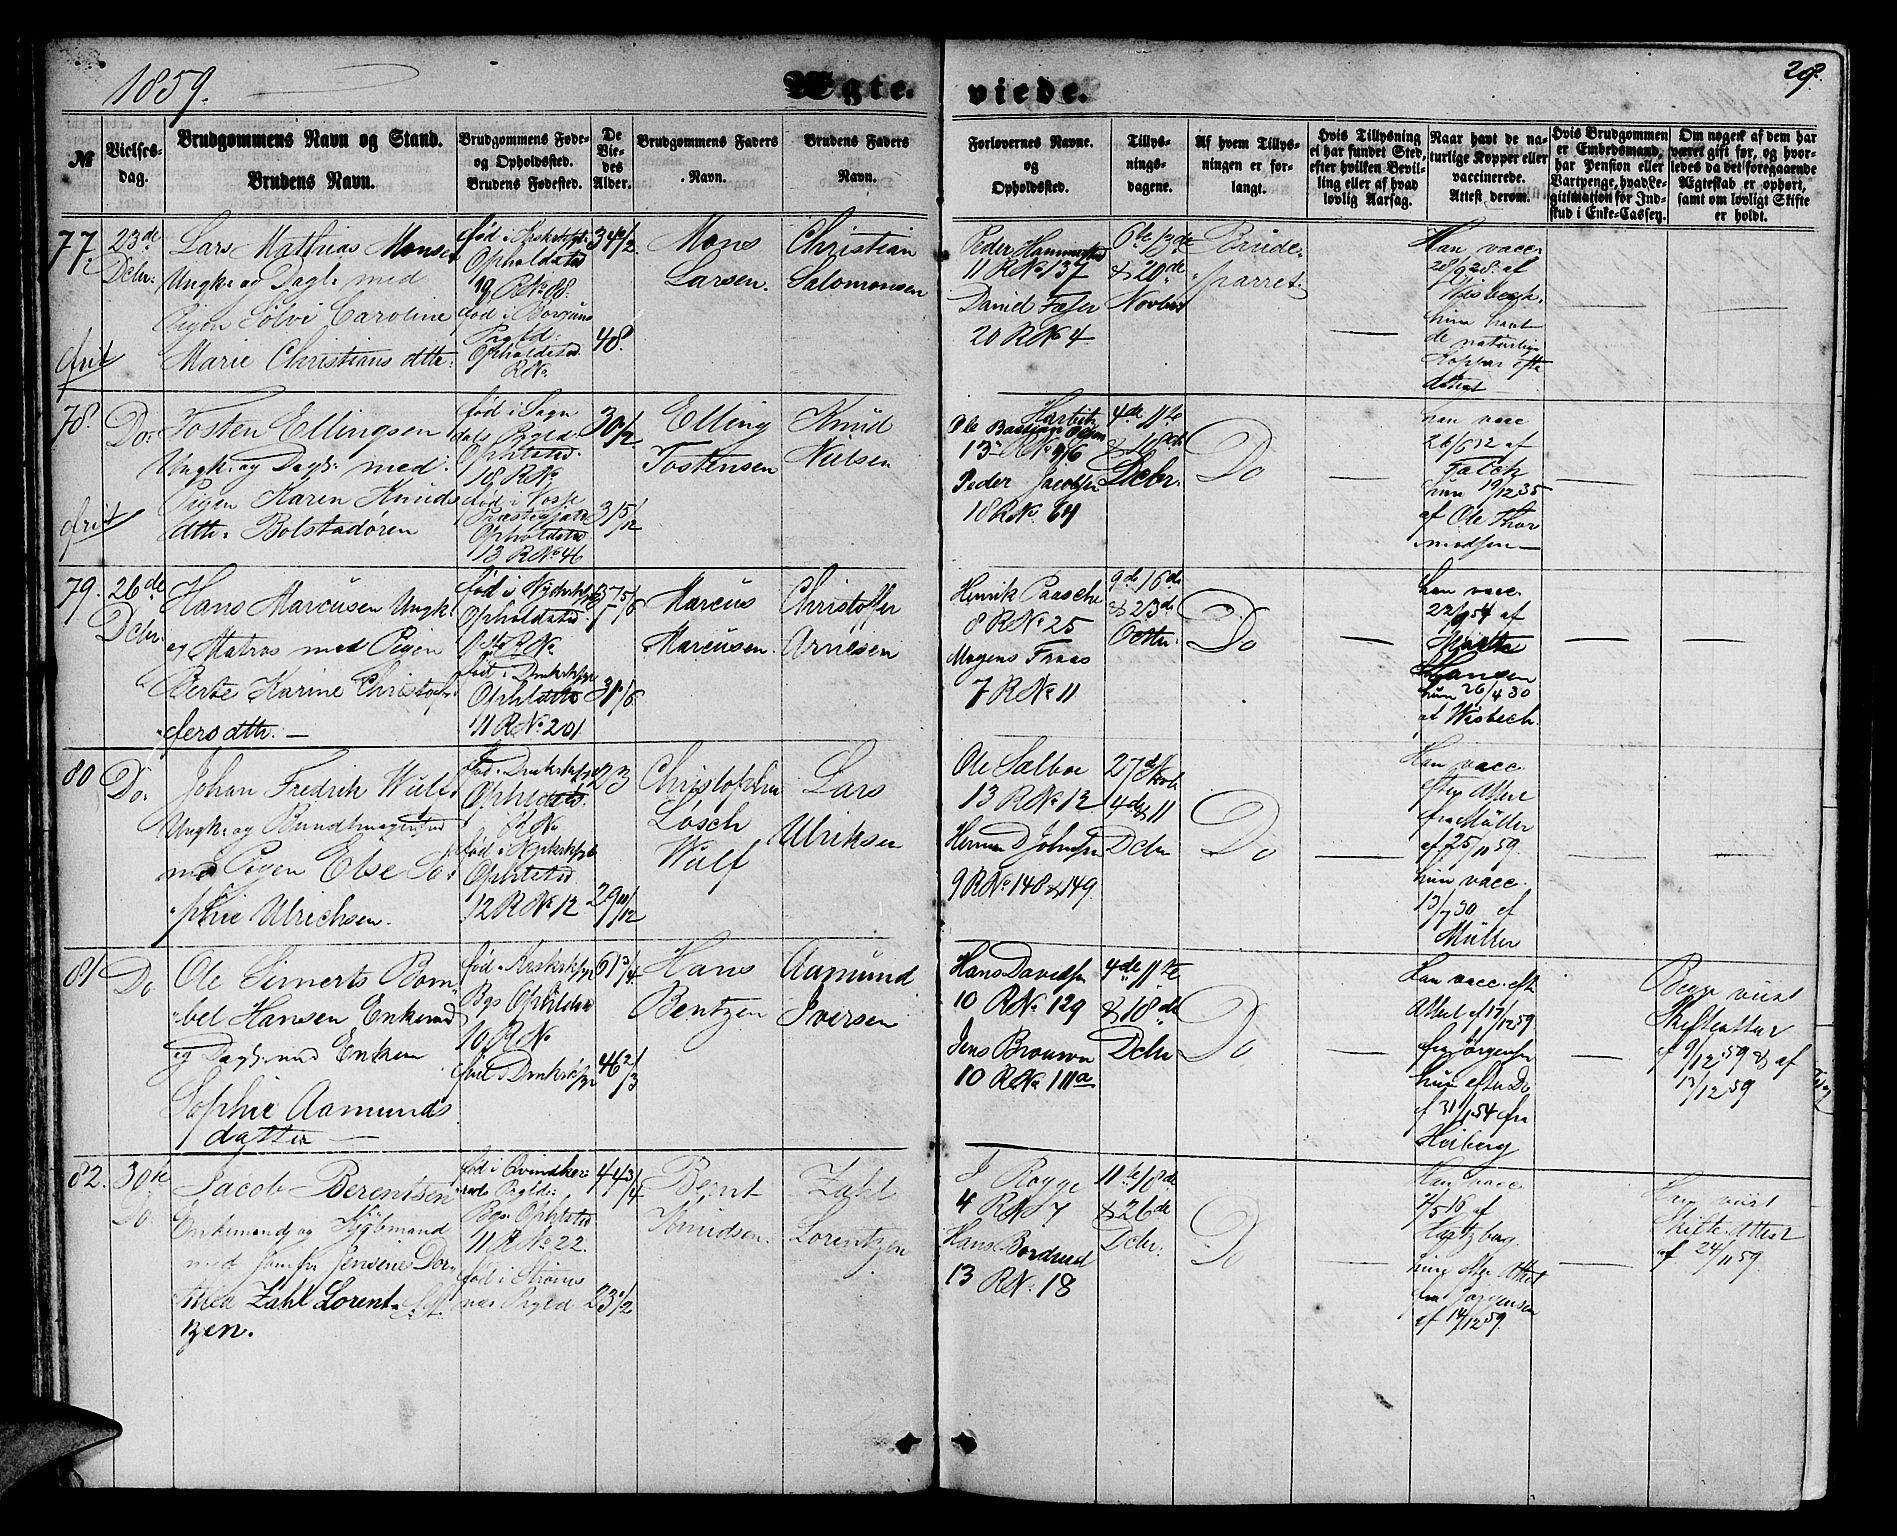 1859.
Ægte.
viede.
29.
№
Vielses-
dag.
Brudgommens Navn og Stand.
Brudens Navn.
Brudgommens Føde-
og Opholdssted.
Brudens Fødested.
De
Vie-
des
Alder.
Brudgommens Faders
Navn.
Brudens Faders
Navn.
Forlovernes Navne.
og
Opholdssted.
Tillys-
nings-
dagene.
Af hvem Tillys-
ningen er for-
langt.
Hvis Tillysning
ei har fundet Sted,
efter hvilken Bevil-
ling eller af hvad
lovlig Aarsag.
Naar havt de na-
turlige Kopper eller
vaccinerede.
Attest derom.
Hvis Brudgommen
er Embedsmand,
har Pension eller
Vartpenge, hvad Le-
gitimation for Ind-
skud i Enke-Cassen.
Om nogen af dem har
været gift før, og hvor-
ledes da det foregaaende
Ægteskab er ophørt,
samt om lovligt Skifte
er holdt.
77.
23de
Dcbr.
Lars Mathias Monsen
Ungk. og Dagl. med
Pigen Sølvi Caroline
Marie Christians dttr.
Opholdssted
19 R№ 88.
48.
Mons
Larsen.
Christian
Salomonsen
Peder Hammersted
11 R№ 137
David
20 R№ 4
& 20de
Novbr
Brude-
parret.
Han vacc.
28/9 28. af
Wisbech.
hun havt
de naturlige
Kopper efter
Attest
78.
Do.
Tosten Ellingsen
Ungk. og Dagl. med
Pigen Karen Knuds
dttr. Bolstadøren
frit
født i Sogn
dals Prgtld.
18 R№
født i Voss
Præstegjæld
Opholdssted
13 R№ 46
30/2
31 5/12
Elling
Tostensen
Knud
Nielsen
13 R№ 96
Peder Jacobsen
18 R№ 64
4de 11te
& 18de
Dcbr.
Do
han vacc
26/6 12 af
hun 19/12 35
af Ole Thor
modsen
79.
26de
Dcbr.
Hans Marcusen Ungk.
og Matros med Pigen
Berte Karine Christof
fersdttr.
11 R№ 201
Marcus
Marcusen.
Christoffer
Arnesen
Henrik Paasche
8 R№ 25
Mogens Fraas
7 R№ 11
9de 16de
& 23de
Octbr.
Do
han vacc.
22/9 54 af
hun 26/4 30
af Wisbech.
80
Do.
Johan Fredrik Wulf
Ungk. og Bundtmagersvend
med Pigen Else So-
phie Ulrichsen.
12 R№ 12
23
29 11/12
Løsch
Wulf
Lars
Ulriksen
Ole Salboe
13 R№ 12
Herman D Johnsen
9 R№ 148 & 149.
27de Novb
4de & 11
Dcbr
Do
Han vacc.
efter Attest
fra Müller
af 25/11 59.
hun vacc.
13/7 30 af
Müller
81
Do
Ole Simerts Bom-
bel Hansen Enkemd
og Dagl. med Enken
Sophie Aamunds
datter
10 R№
61 3/4
46 2/3
Hans
Bentzen
Aamund
Iversen
Hans Davidsen
10 R№ 129
Jens Brouson
10 R№ 111a
4de 11te
& 18de
Dcbr
Do
Han vacc. eft
Attest af 17/12 59
fra Jørgensen
hun efter Do
af 31/1 54 fra
Heiberg
Begge viist
Skifteattest
af 9/12 59 & af
13/12 59
82.
30te
Do.
Jacob Berentsen
Enkemand og Kjøbmand
med Jomfru Jensine Dor-
thea Zahl Lorent-
zen.
født i Qvindher-
reds Prgtld.
11 R№ 22.
født i Strøms
44 3/4
23 1/2
Bernt
Knudsen.
Zahl
Lorentzen
J Rogge
4 R№ 7
Hans Bordrud
13 R№ 18
11te 18de
& 26de
Dcbr.
Do
Han vacc
7/5 16 af
Hertzberg
hun efter Attest
fra Jørgensen
af 14/12 59.
Han viist
Skifte Attest
af 24/11 59.